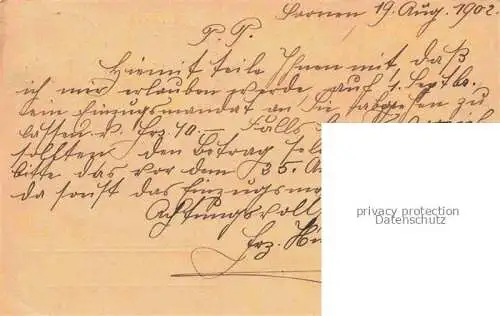 Sarnen 19. Aug. 1902.
P. P.
Hiemit teile Ihnen mit, daß
ich mir erlauben werde auf 1. Septb.
ein Einzugsmandat an Sie abgehen zu
lassen v. frz. 40.— Falls
sollten den Betrag
bitte das vor dem 25. A
da sonst das Einzugsma
Achtungsvoll
frz.
privacy protection
Datenschutz